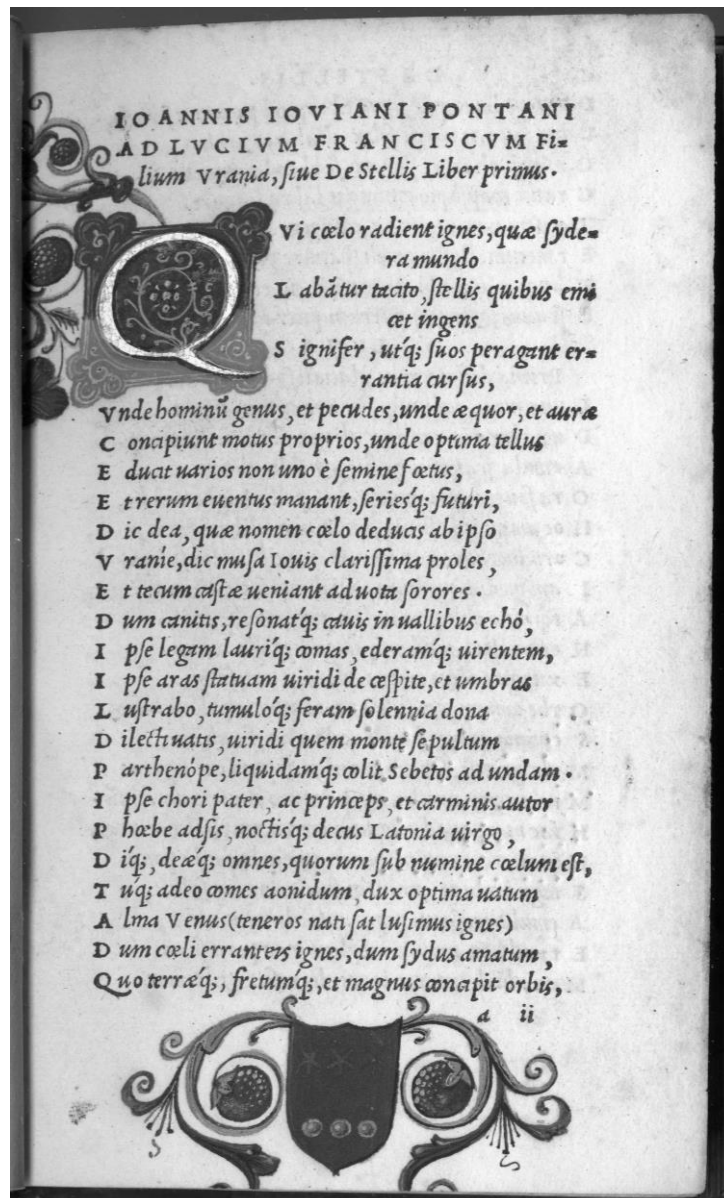 IOANNIS IOVIANI PONTANI
AD LVCIVM FRANCISCVM Fi=
lium Vrania, ſiue De Stellis Liber primus.
QVi cœlo radient ignes, quæ ſyde=
ra mundo
L abãtur tacito, ſtellis quibus emi
cet ingens
S ignifer, utq; ſuos peragant er=
rantia curſus,
Vnde hominũ genus, et pecudes, unde æquor, et auræ
C oncipiunt motus proprios, unde optima tellus
E ducit uarios non uno è ſemine fœtus,
E t rerum euentus manant, ſeriesq́; futuri,
D ic dea, quæ nomen cœlo deducis ab ipſo
V ranie, dic muſa Iouis clariſſima proles,
E t tecum caſtæ ueniant ad uota ſorores.
D um canitis, reſonatq́; cauis in uallibus echó,
I pſe legam lauriq́; comas, ederamq́; uirentem,
I pſe aras ſtatuam uiridi de ceſpite, et umbras
L uſtrabo, tumuloq́; feram ſolennia dona
D ilecti uatis, uiridi quem monte ſepultum
P arthenópe, liquidamq́; colit Sebetos ad undam.
I pſe chori pater, ac princeps, et carminis autor
P hœbe adſis, noctisq́; decus Latonia uirgo,
D iq́;, deæq́; omnes, quorum ſub numine cœlum eſt,
T uq́; adeo comes aonidum, dux optima uatum
A lma Venus (teneros nati ſat luſimus ignes)
D um cœli erranteis ignes, dum ſydus amatum,
Q uo terræq́;, fretumq́;, et magnus concipit orbis,
a ii